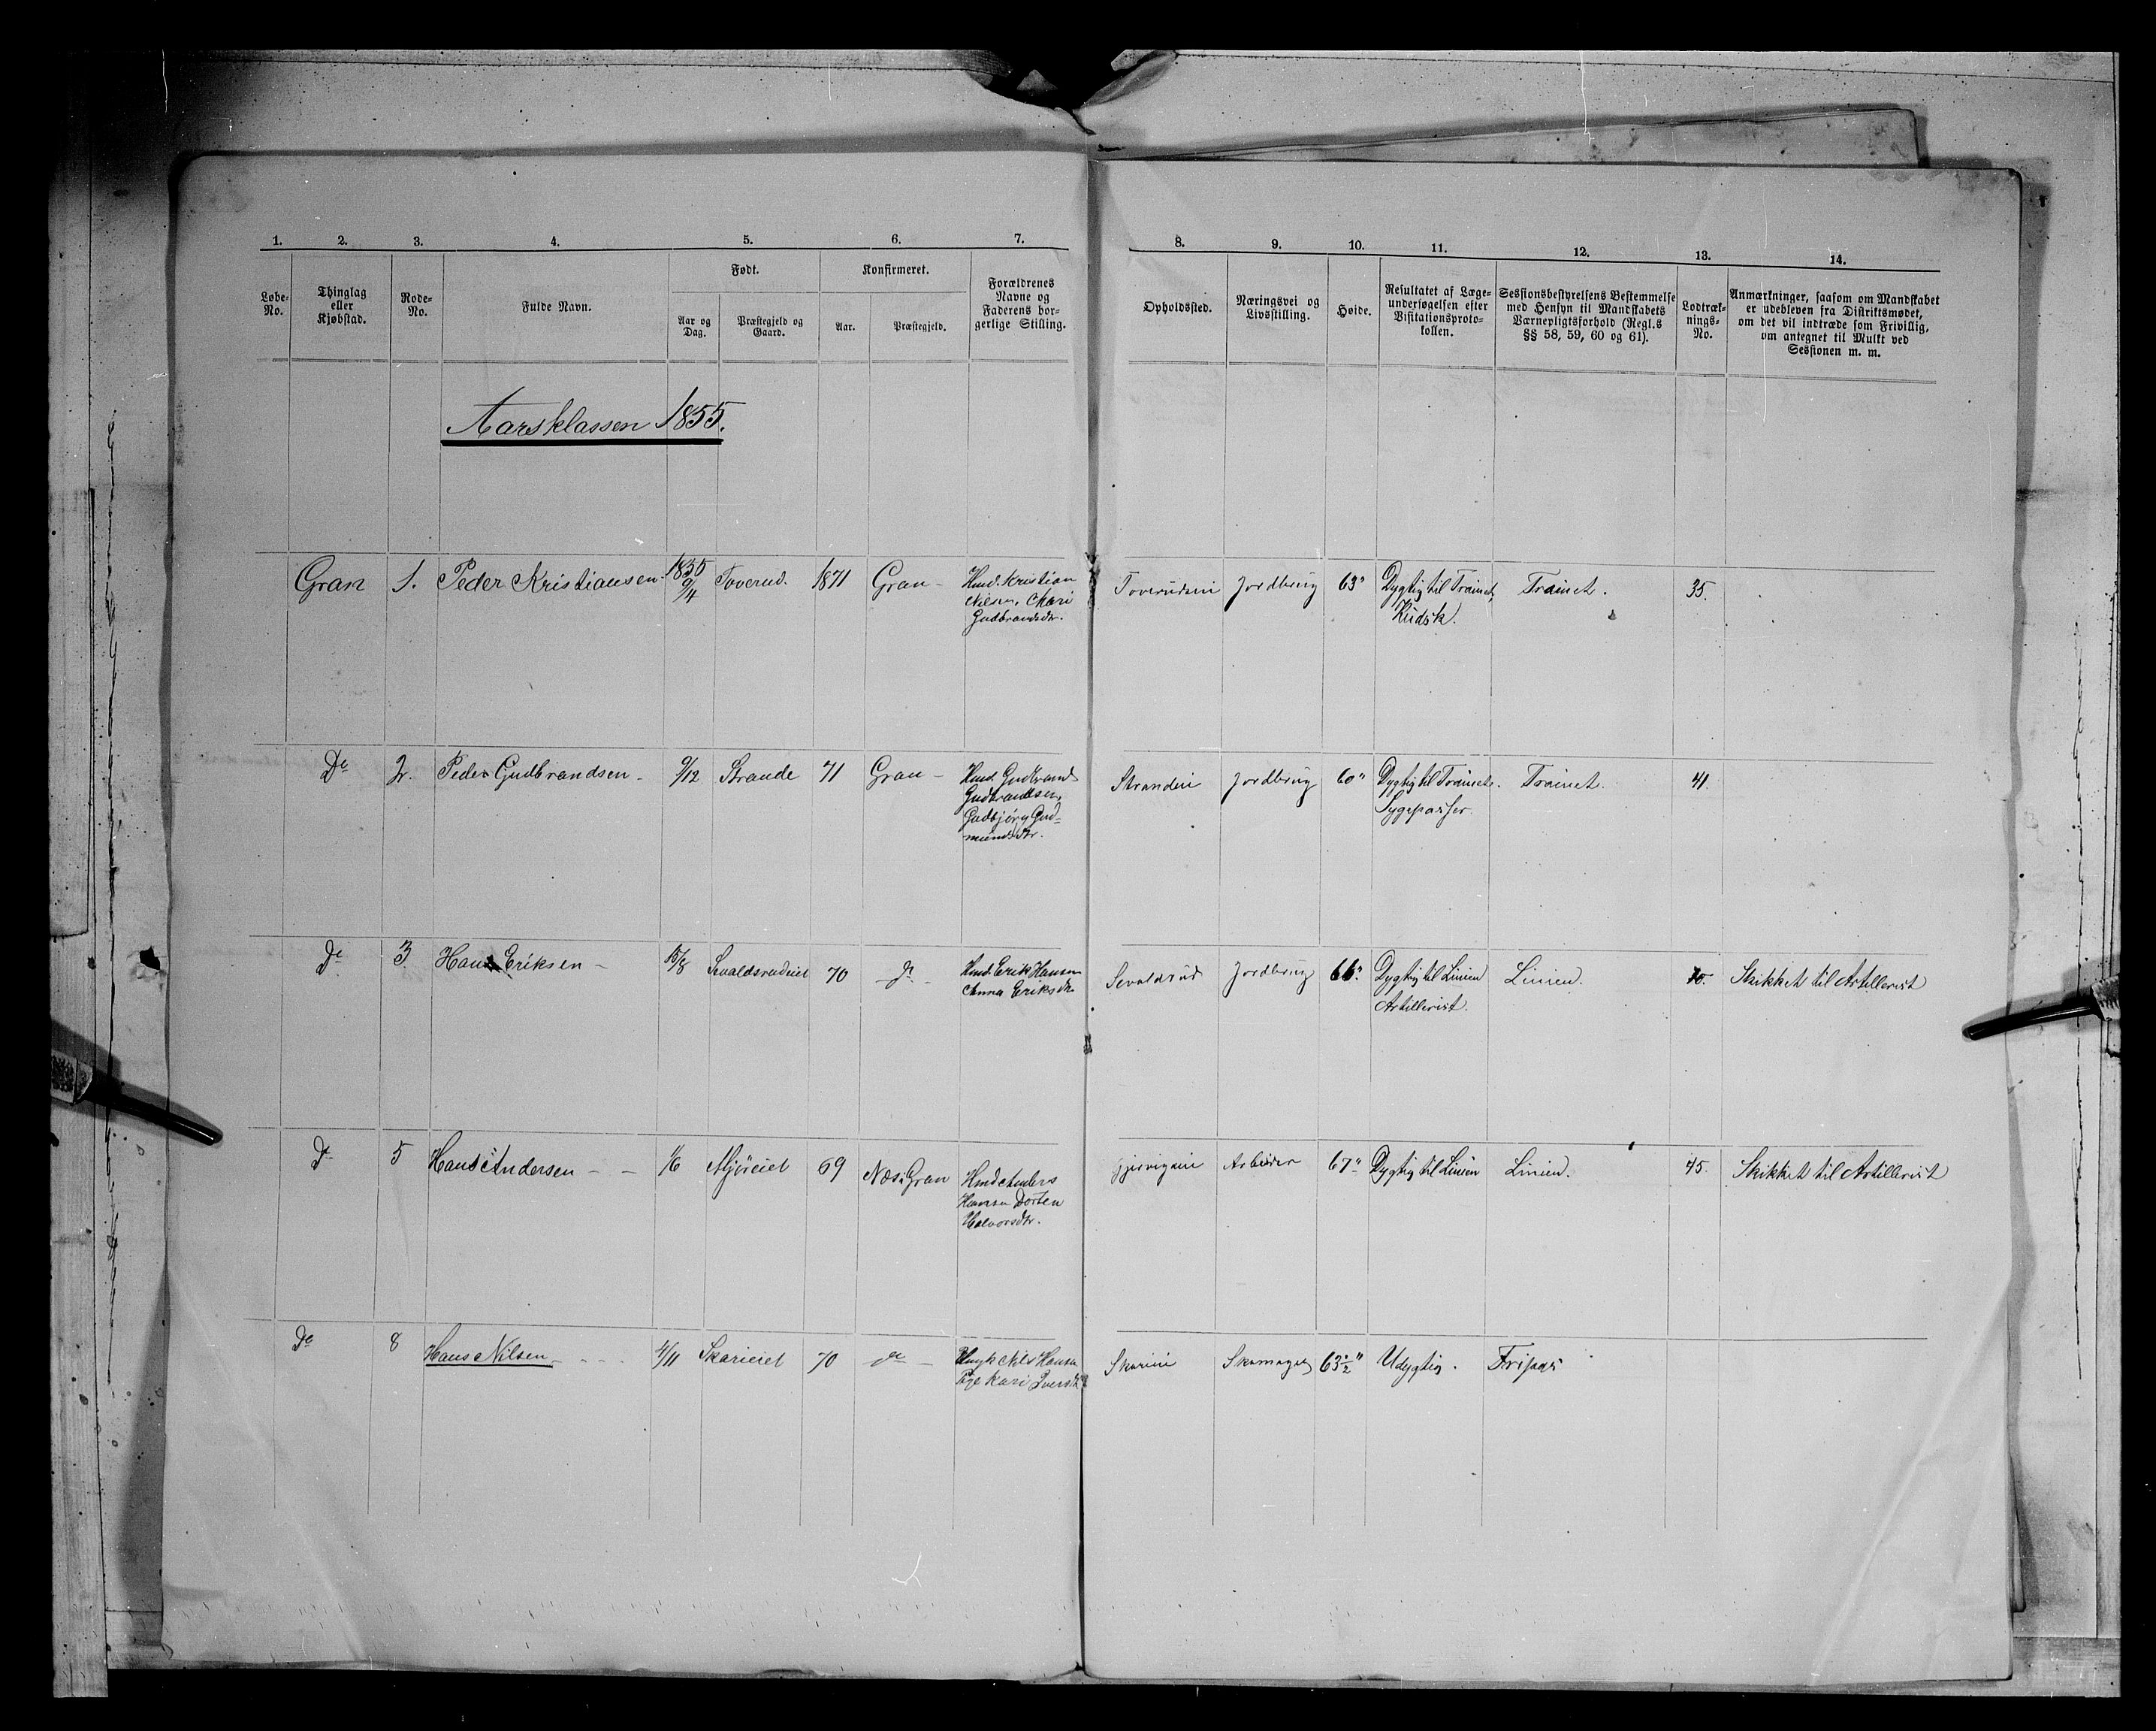 1. 2. 3. 4. 5. 6. 7. 8. 9. 10. 11. 12. 13. 14.
Løbe-
No.
Thinglag
eller
Kjøbstad.
Rode-
No.
Fulde Navn.
Født.
Aar og
Dag.
Præstegjeld og
Gaard.
Konfirmeret.
Aar.
Præstegjeld.
Forældrenes
Navne og
Faderens bor-
gerlige Stilling.
Opholdssted.
Næringsvei og
Livsstilling.
Høide.
Resultatet af Læge-
undersøgelsen efter
Visitationsproto-
kollen.
Sessionsbestyrelsens Bestemmelse
med Hensyn til Mandskabets
Værnepligtsforhold (Regl.s
§§ 58, 59, 60 og 61).
Lodtræk-
nings-
No.
Anmærkninger, saasom om Mandskabet
er udebleven fra Distriktsmødet,
om det vil indtræde som Frivillig,
om antegnet til Mulkt ved
Sessionen m. m.
Aarsklassen 1855.
Gran 1. Peder Kristiansen. 1855 9/4 Toverud. 1871 Gran –
Hmd. Kristian
Nilsen, Mari
Gudbrandsdtr.
Toverudeie Jordbrug 63"
Dygtig til Trainet,
Kudsk.
Trainet. 35.
Do 2. Peder Gudbrandsen – 9/12 Strande 71 Gran –
Hmd Gudbrand
Gudbrandsen,
Gudbjørg Gud-
mundsdtr.
Strandeie Jordbrug 60"
Dygtig til Trainet.
Sygepasser.
Trainet. 41.
Do 3. Hans Eriksen – 15/8 Sevaldsrudeiet 70 do –
Hmd. Erik Hansen
Anna Eriksdtr
Sevaldsrud Jordbrug 66".
Dygtig til Linien
Artillerist.
Linien. 10. Skikket til Artillerist
Do 5 Hans Andersen – – 1/6 Mjøreiet 69 Næs i Gran
Hmd Anders
Hansen Dorten
Halvorsdtr.
Arbeider 67" Dygtig til Linien Linien. 45. Skikket til Artillerist
Do 8 Hans Nilsen – – – 4/11 Skarieiet 70 do –
Nils Hansen
Pige Kari Iversdtr
Skarieie Skomager 63 1/2" Udygtig. Fripas